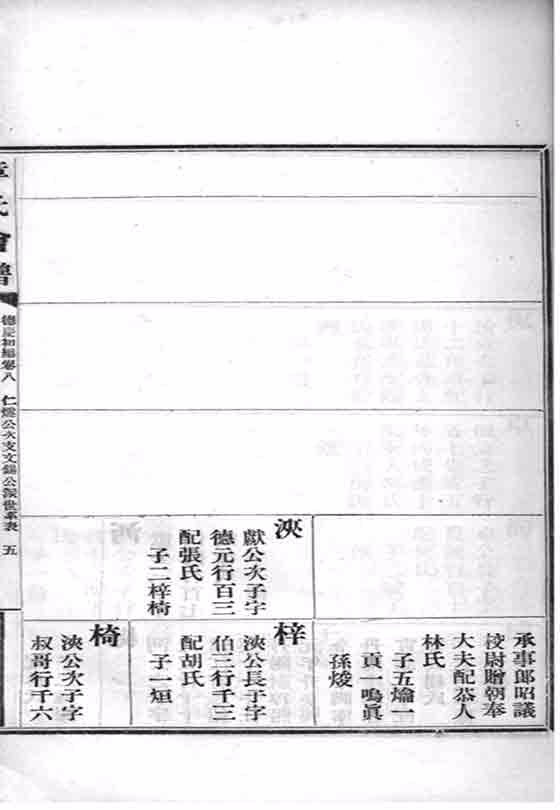 浹
獻公次子字
德元行百三
配張氏
子二梓椅
承事郎昭議
校尉贈朝奉
大夫配恭人
林氏
子五爚一
貢一鳴眞
孫焌
梓
浹公長子字
伯三行千三
配胡氏
子一烜
椅
浹公次子字
叔哥行千六
章氏會譜
德慶初編卷八
仁燧公次支文錫公派世系表
五